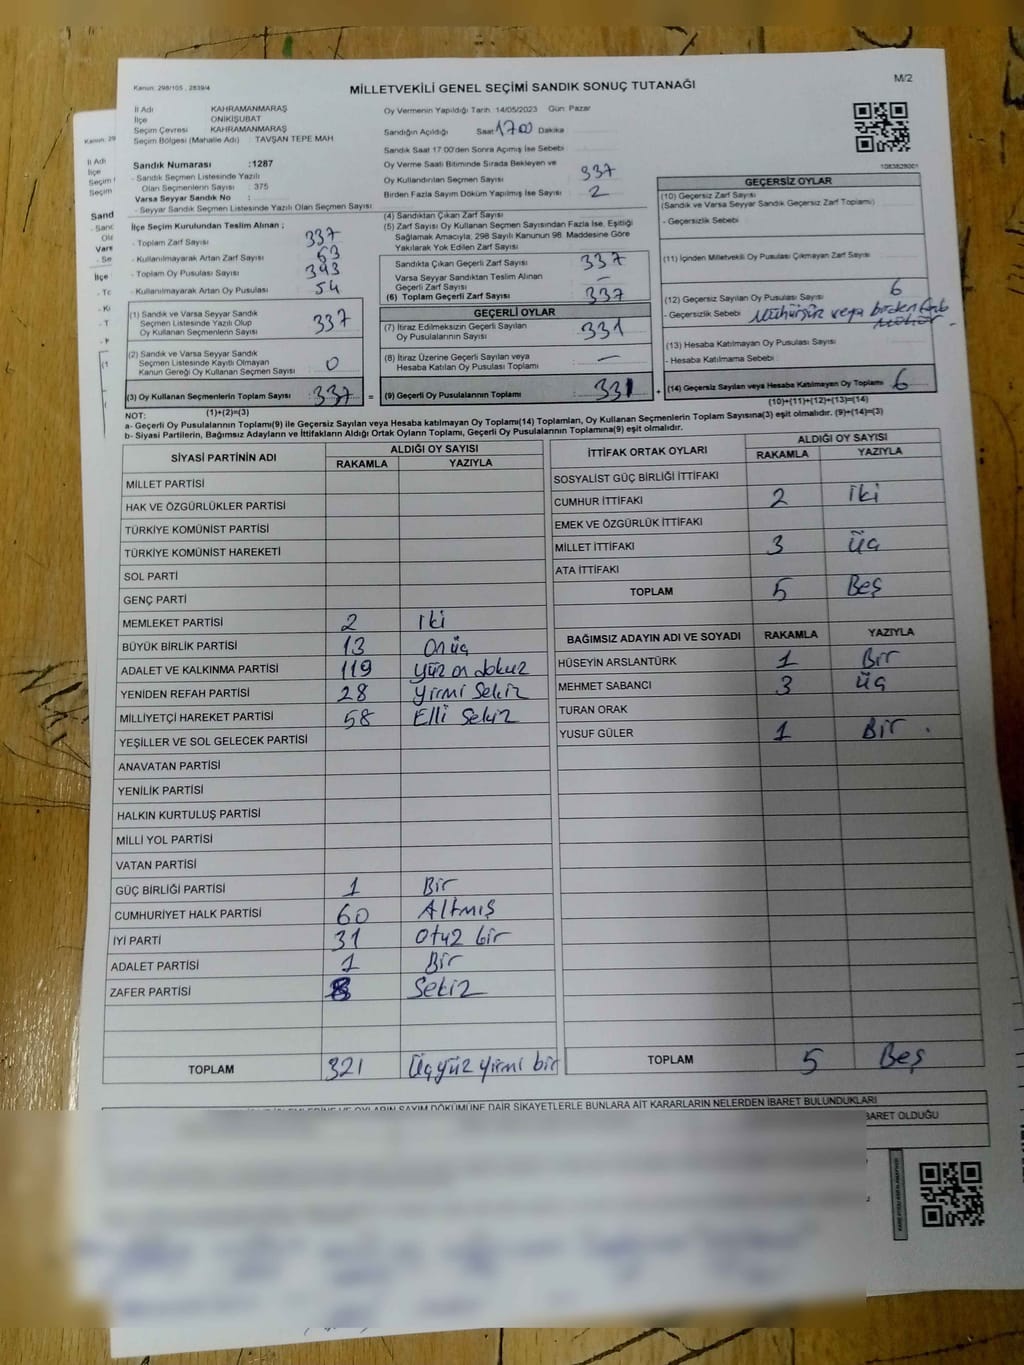 Kanun: 298/105 , 2839/4
M/2
MİLLETVEKİLİ GENEL SEÇİMİ SANDIK SONUÇ TUTANAĞI
İl Adı KAHRAMANMARAŞ
İlçe ONİKİŞUBAT
Seçim Çevresi KAHRAMANMARAŞ
Seçim Bölgesi (Mahalle Adı) : TAVŞAN TEPE MAH
Sandık Numarası :1287
- Sandık Seçmen Listesinde Yazılı
Olan Seçmenlerin Sayısı : 375
Varsa Seyyar Sandık No :
- Seyyar Sandık Seçmen Listesinde Yazılı Olan Seçmen Sayısı
Oy Vermenin Yapıldığı Tarih: 14/05/2023 Gün: Pazar
Sandığın Açıldığı Saat 17 00 Dakika
Sandık Saat 17:00'den Sonra Açımış İse Sebebi
Oy Verme Saati Bitiminde Sırada Bekleyen ve
Oy Kullandırılan Seçmen Sayısı 337
Birden Fazla Sayım Döküm Yapılmış İse Sayısı 2
1083828001
İlçe Seçim Kurulundan Teslim Alınan ;
- Toplam Zarf Sayısı 337
- Kullanılmayarak Artan Zarf Sayısı 63
- Toplam Oy Pusulası Sayısı 343
- Kullanılmayarak Artan Oy Pusulası 54
(1) Sandık ve Varsa Seyyar Sandık
Seçmen Listesinde Yazılı Olup
Oy Kullanan Seçmenlerin Sayısı 337
(2) Sandık ve Varsa Seyyar Sandık
Seçmen Listesinde Kayıtlı Olmayan
Kanun Gereği Oy Kullanan Seçmen Sayısı 0
(3) Oy Kullanan Seçmenlerin Toplam Sayısı : 337 =
(1)+(2)=(3)
(4) Sandıktan Çıkan Zarf Sayısı
(5) Zarf Sayısı Oy Kullanan Seçmen Sayısından Fazla İse, Eşitliği
Sağlamak Amacıyla, 298 Sayılı Kanunun 98. Maddesine Göre
Yakılarak Yok Edilen Zarf Sayısı
Sandıkta Çıkan Geçerli Zarf Sayısı 337
Varsa Seyyar Sandıktan Teslim Alınan
Geçerli Zarf Sayısı —
(6) Toplam Geçerli Zarf Sayısı 337
GEÇERLİ OYLAR
(7) İtiraz Edilmeksizin Geçerli Sayılan
Oy Pusulalarının Sayısı 331
(8) İtiraz Üzerine Geçerli Sayılan veya
Hesaba Katılan Oy Pusulası Toplamı —
(9) Geçerli Oy Pusulalarının Toplamı 331 +
GEÇERSİZ OYLAR
(10) Geçersiz Zarf Sayısı
(Sandık ve Varsa Seyyar Sandık Geçersiz Zarf Toplamı)
- Geçersizlik Sebebi
(11) İçinden Milletvekili Oy Pusulası Çıkmayan Zarf Sayısı
(12) Geçersiz Sayılan Oy Pusulası Sayısı 6
- Geçersizlik Sebebi Mühürsüz veya birden fazla
Mühür .
(13) Hesaba Katılmayan Oy Pusulası Sayısı
- Hesaba Katılmama Sebebi
(14) Geçersiz Sayılan veya Hesaba Katılmayan Oy Toplamı 6
(10)+(11)+(12)+(13)=(14)
NOT:
a- Geçerli Oy Pusulalarının Toplamı(9) ile Geçersiz Sayılan veya Hesaba katılmayan Oy Toplamı(14) Toplamları, Oy Kullanan Seçmenlerin Toplam Sayısına(3) eşit olmalıdır. (9)+(14)=(3)
b- Siyasi Partilerin, Bağımsız Adayların ve İttifakların Aldığı Ortak Oyların Toplamı, Geçerli Oy Pusulalarının Toplamına(9) eşit olmalıdır.
SİYASİ PARTİNİN ADI ALDIĞI OY SAYISI
RAKAMLA YAZIYLA
MİLLET PARTİSİ
HAK VE ÖZGÜRLÜKLER PARTİSİ
TÜRKİYE KOMÜNİST PARTİSİ
TÜRKİYE KOMÜNİST HAREKETİ
SOL PARTİ
GENÇ PARTİ
MEMLEKET PARTİSİ 2 iki
BÜYÜK BİRLİK PARTİSİ 13 On üç
ADALET VE KALKINMA PARTİSİ 119 yüz on dokuz
YENİDEN REFAH PARTİSİ 28 yirmi Sekiz
MİLLİYETÇİ HAREKET PARTİSİ 58 Elli Sekiz
YEŞİLLER VE SOL GELECEK PARTİSİ
ANAVATAN PARTİSİ
YENİLİK PARTİSİ
HALKIN KURTULUŞ PARTİSİ
MİLLİ YOL PARTİSİ
VATAN PARTİSİ
GÜÇ BİRLİĞİ PARTİSİ 1 Bir
CUMHURİYET HALK PARTİSİ 60 Altmış
İYİ PARTİ 31 Otuz bir
ADALET PARTİSİ 1 Bir
ZAFER PARTİSİ 8 Sekiz
TOPLAM 321 Üçyüz yirmi bir
İTTİFAK ORTAK OYLARI ALDIĞI OY SAYISI
RAKAMLA YAZIYLA
SOSYALİST GÜÇ BİRLİĞİ İTTİFAKI
CUMHUR İTTİFAKI 2 iki
EMEK VE ÖZGÜRLÜK İTTİFAKI
MİLLET İTTİFAKI 3 Üç
ATA İTTİFAKI
TOPLAM 5 Beş
BAĞIMSIZ ADAYIN ADI VE SOYADI RAKAMLA YAZIYLA
HÜSEYİN ARSLANTÜRK 1 Bir
MEHMET SABANCI 3 Üç
TURAN ORAK
YUSUF GÜLER 1 Bir .
TOPLAM 5 Beş
DAİR ŞİKAYETLERLE BUNLARA AİT KARARLARIN NELERDEN İBARET BULUNDUKLARI
İBARET OLDUĞU